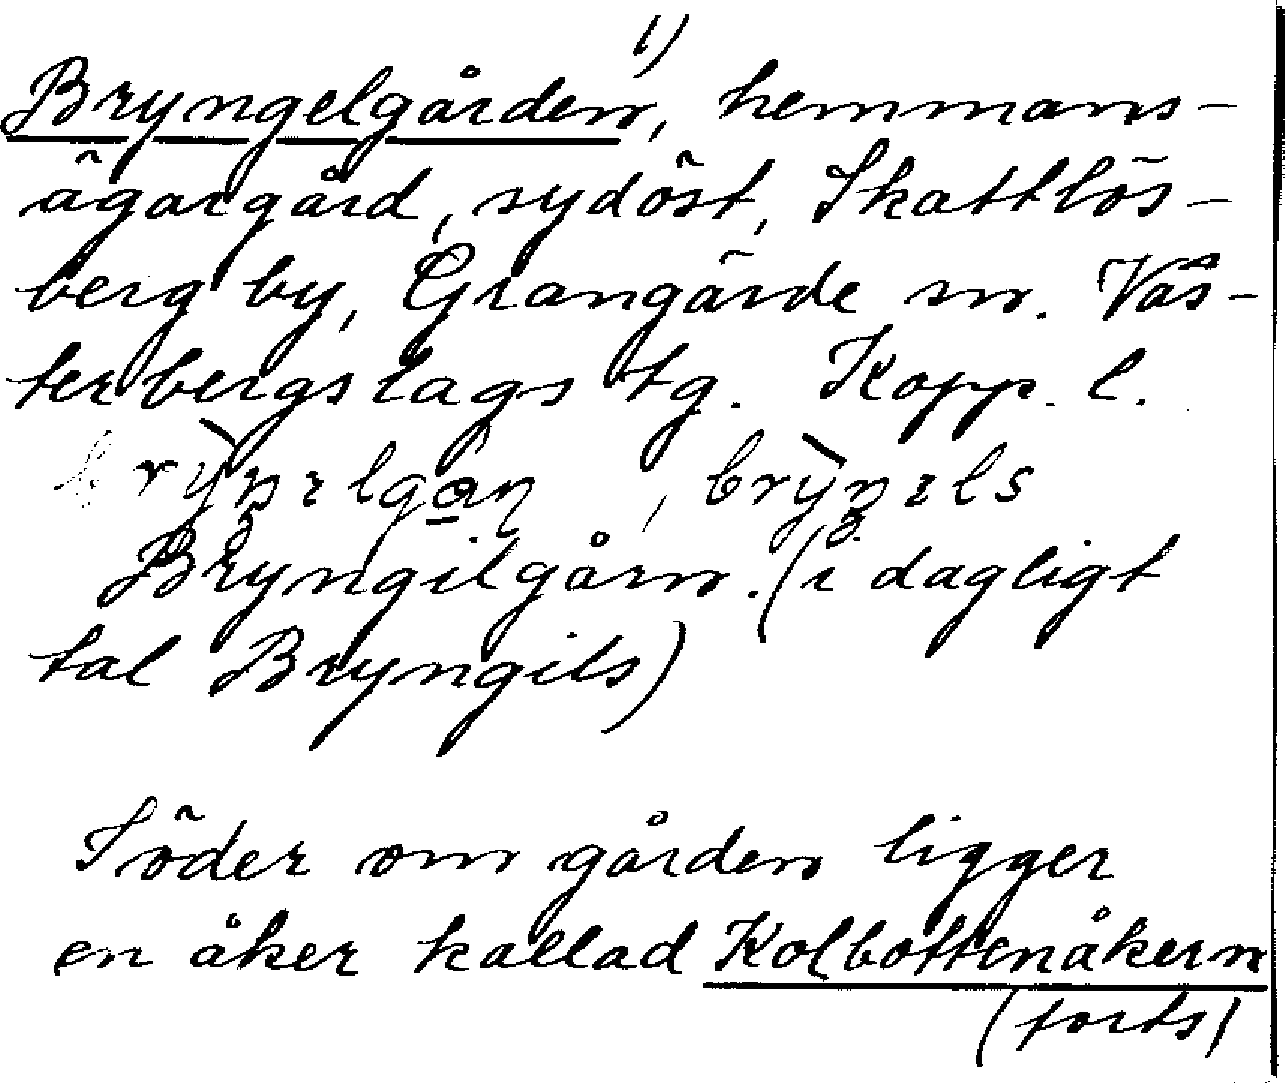 1)
Bryngelgården, hemmans-
ägargård, sydöst, Skattlös-
berg by, Grangärde sn. Väs-
terbergslags tg. Kopp. l.
Bryngilgårn. (i dagligt
tal Bryngils)
Söder om gården ligger
en åker kallad Kolbottenåkern
(forts)